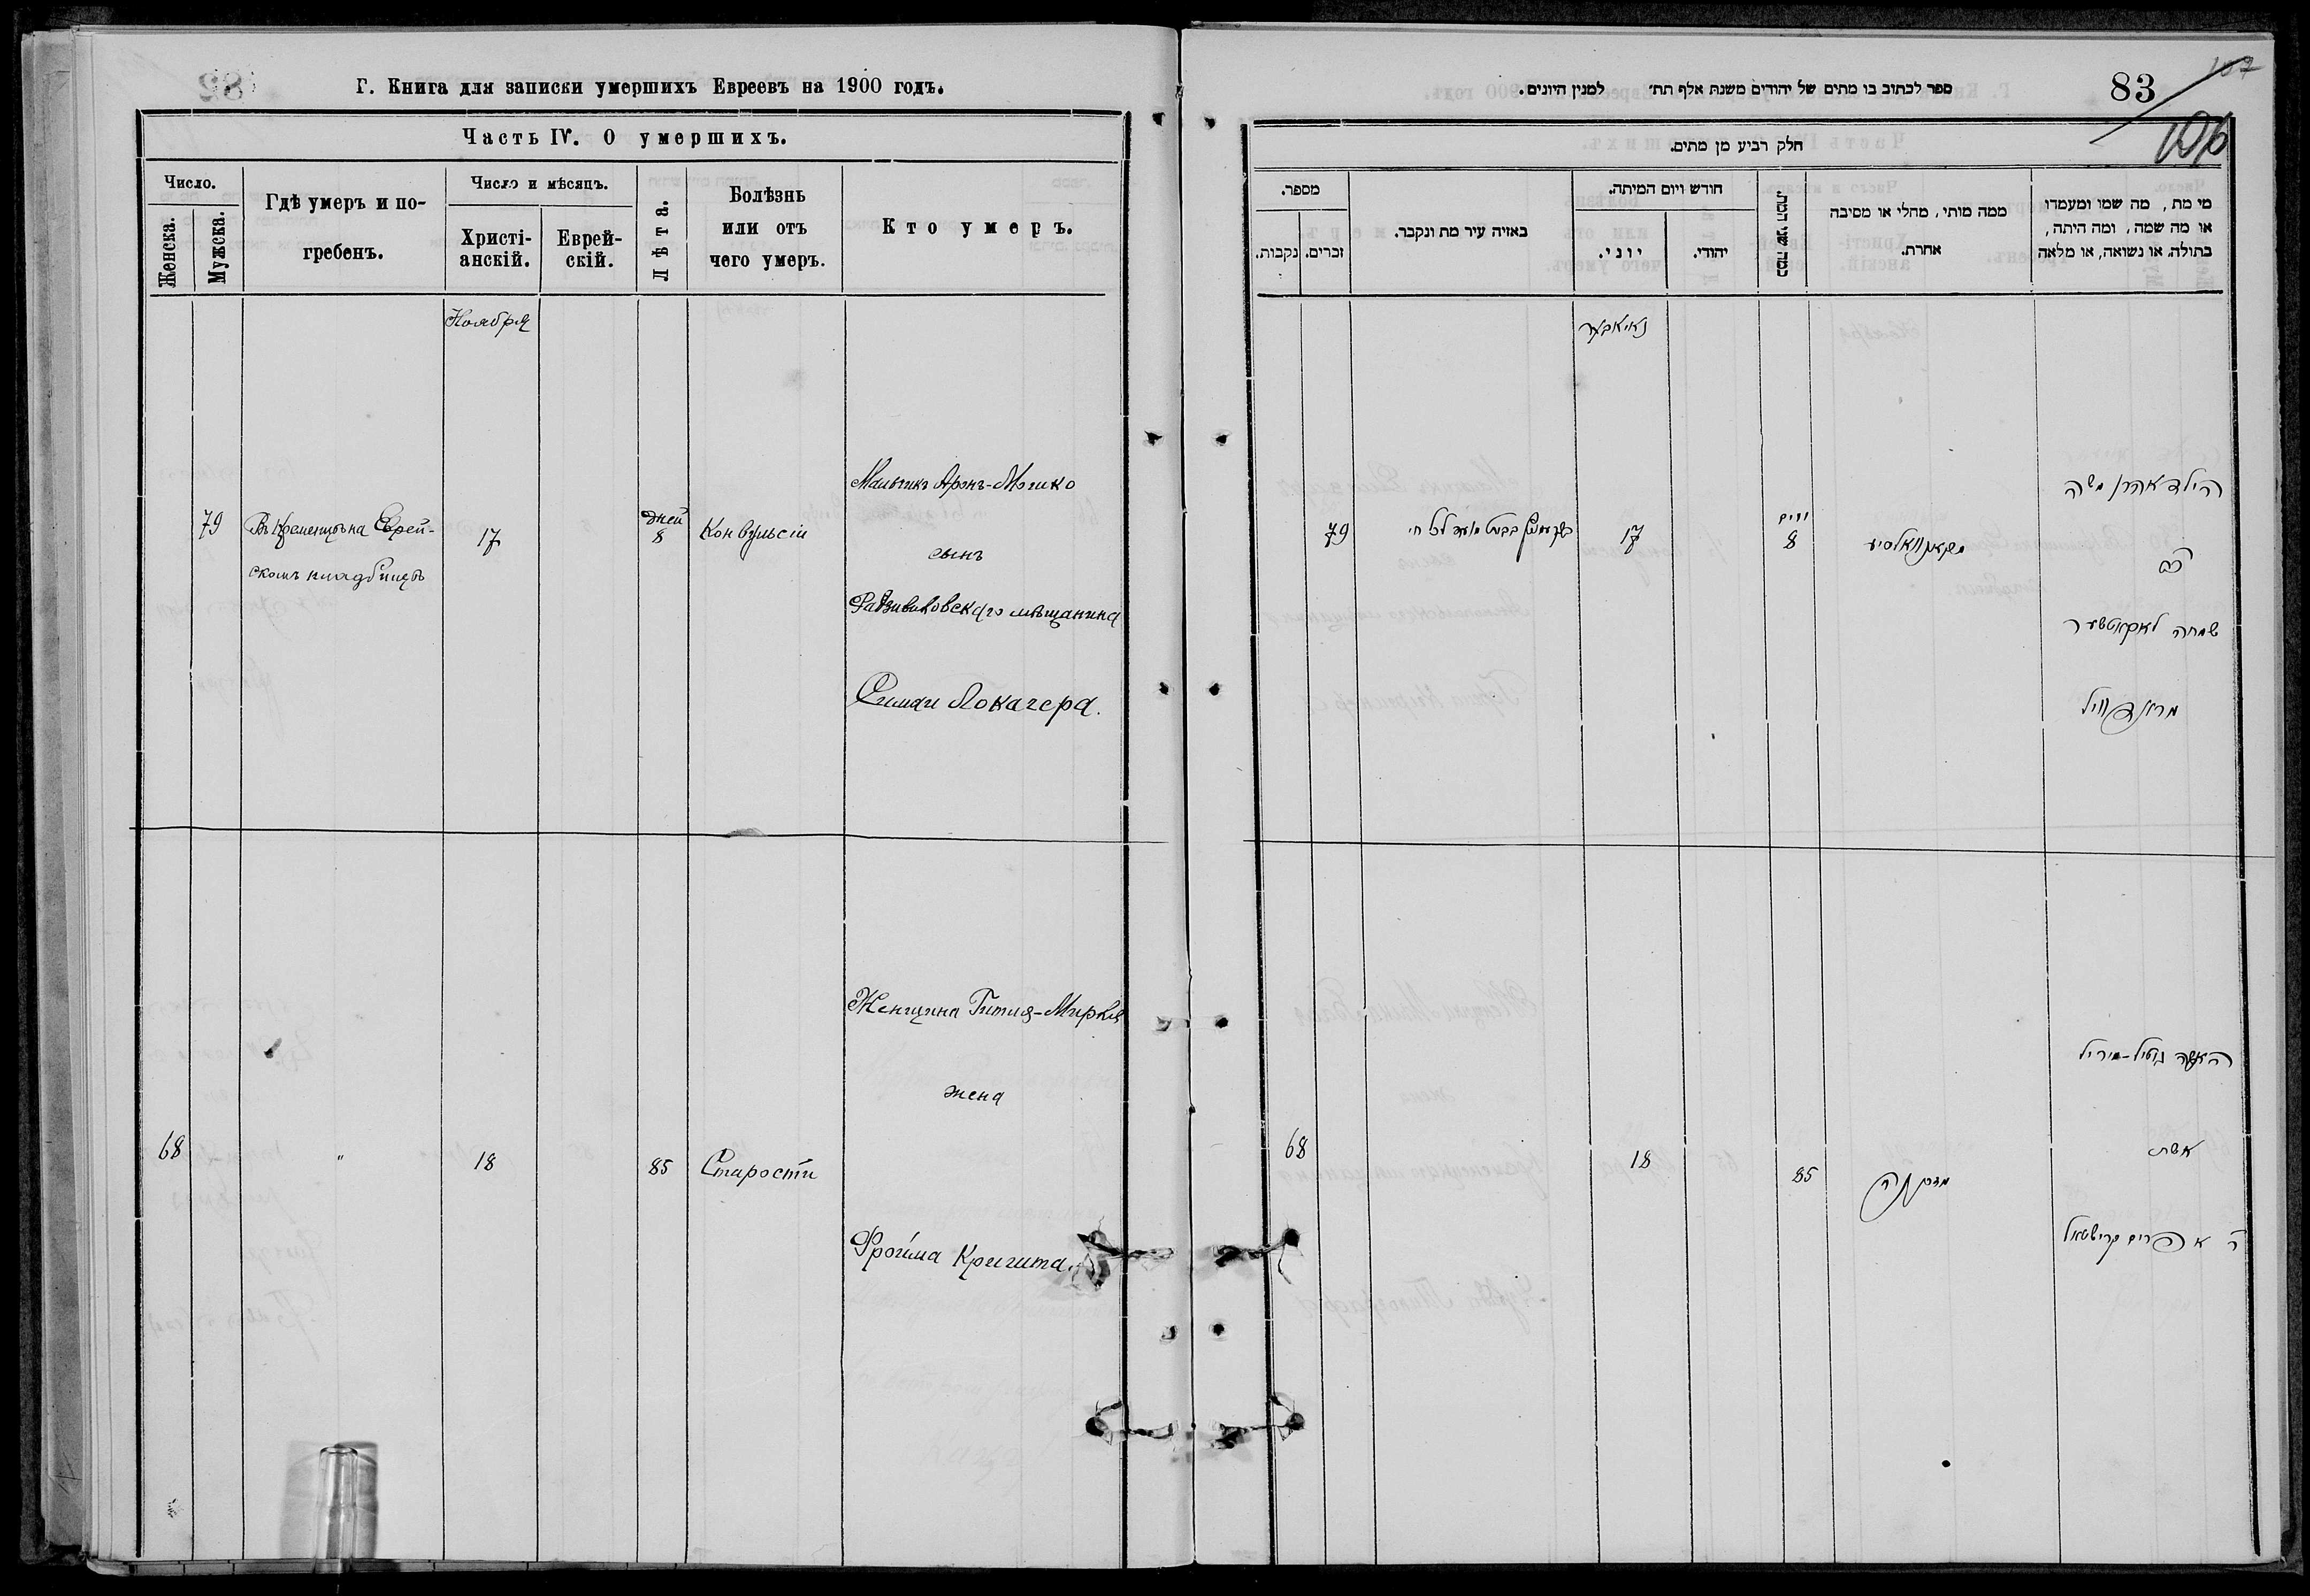 Г. Книга для записки умершихъ Евреевъ на 1900 годъ.
Часть IV. О умершихъ.
Число.
Женска.
Мужска.
Гдѣ умеръ и по-
гребенъ.
Число и мѣсяцъ.
Христі-
анскій.
Еврей-
скій.
Лѣта.
Болѣзнь
или отъ
чего умеръ.
Кто умеръ.
Ноября
79
Въ Кременцѣ на Еврей-
скомъ кладбищѣ
17
дней
8
Конвульсіи
Мальчикъ Аронъ-Мошко
сынъ
Радзивиловскаго мѣщанина
Симхи Локачера.
68
"
18
85
Старости
Женщина Гитля-Мирля
жена
Фроима
83
107
106
ספר לכתוב בו מתים של יהודים משנת אלף תת׳ למנין היונים.
חלק רביע מן מתים.
מספר.
נקבות.
זכרים.
באזיה עיר מת ונקבר.
חודש ויום המיתה.
יוני.
יהודי.
כמה שני המת.
ממה מותי, מחלי או מסיבה
אחרת.
מי מת, מה שמו ומעמדו
או מה שמה, ומה היתה,
בתולה, או נשואה, או מלאה
נאיאבער
79
17
ימים
8
הילד אהרן משה
בן
שמחה לאקאטשער
68
18
85
מזקנה
האשה גיטיל-מירל
אשת
ר אפרים